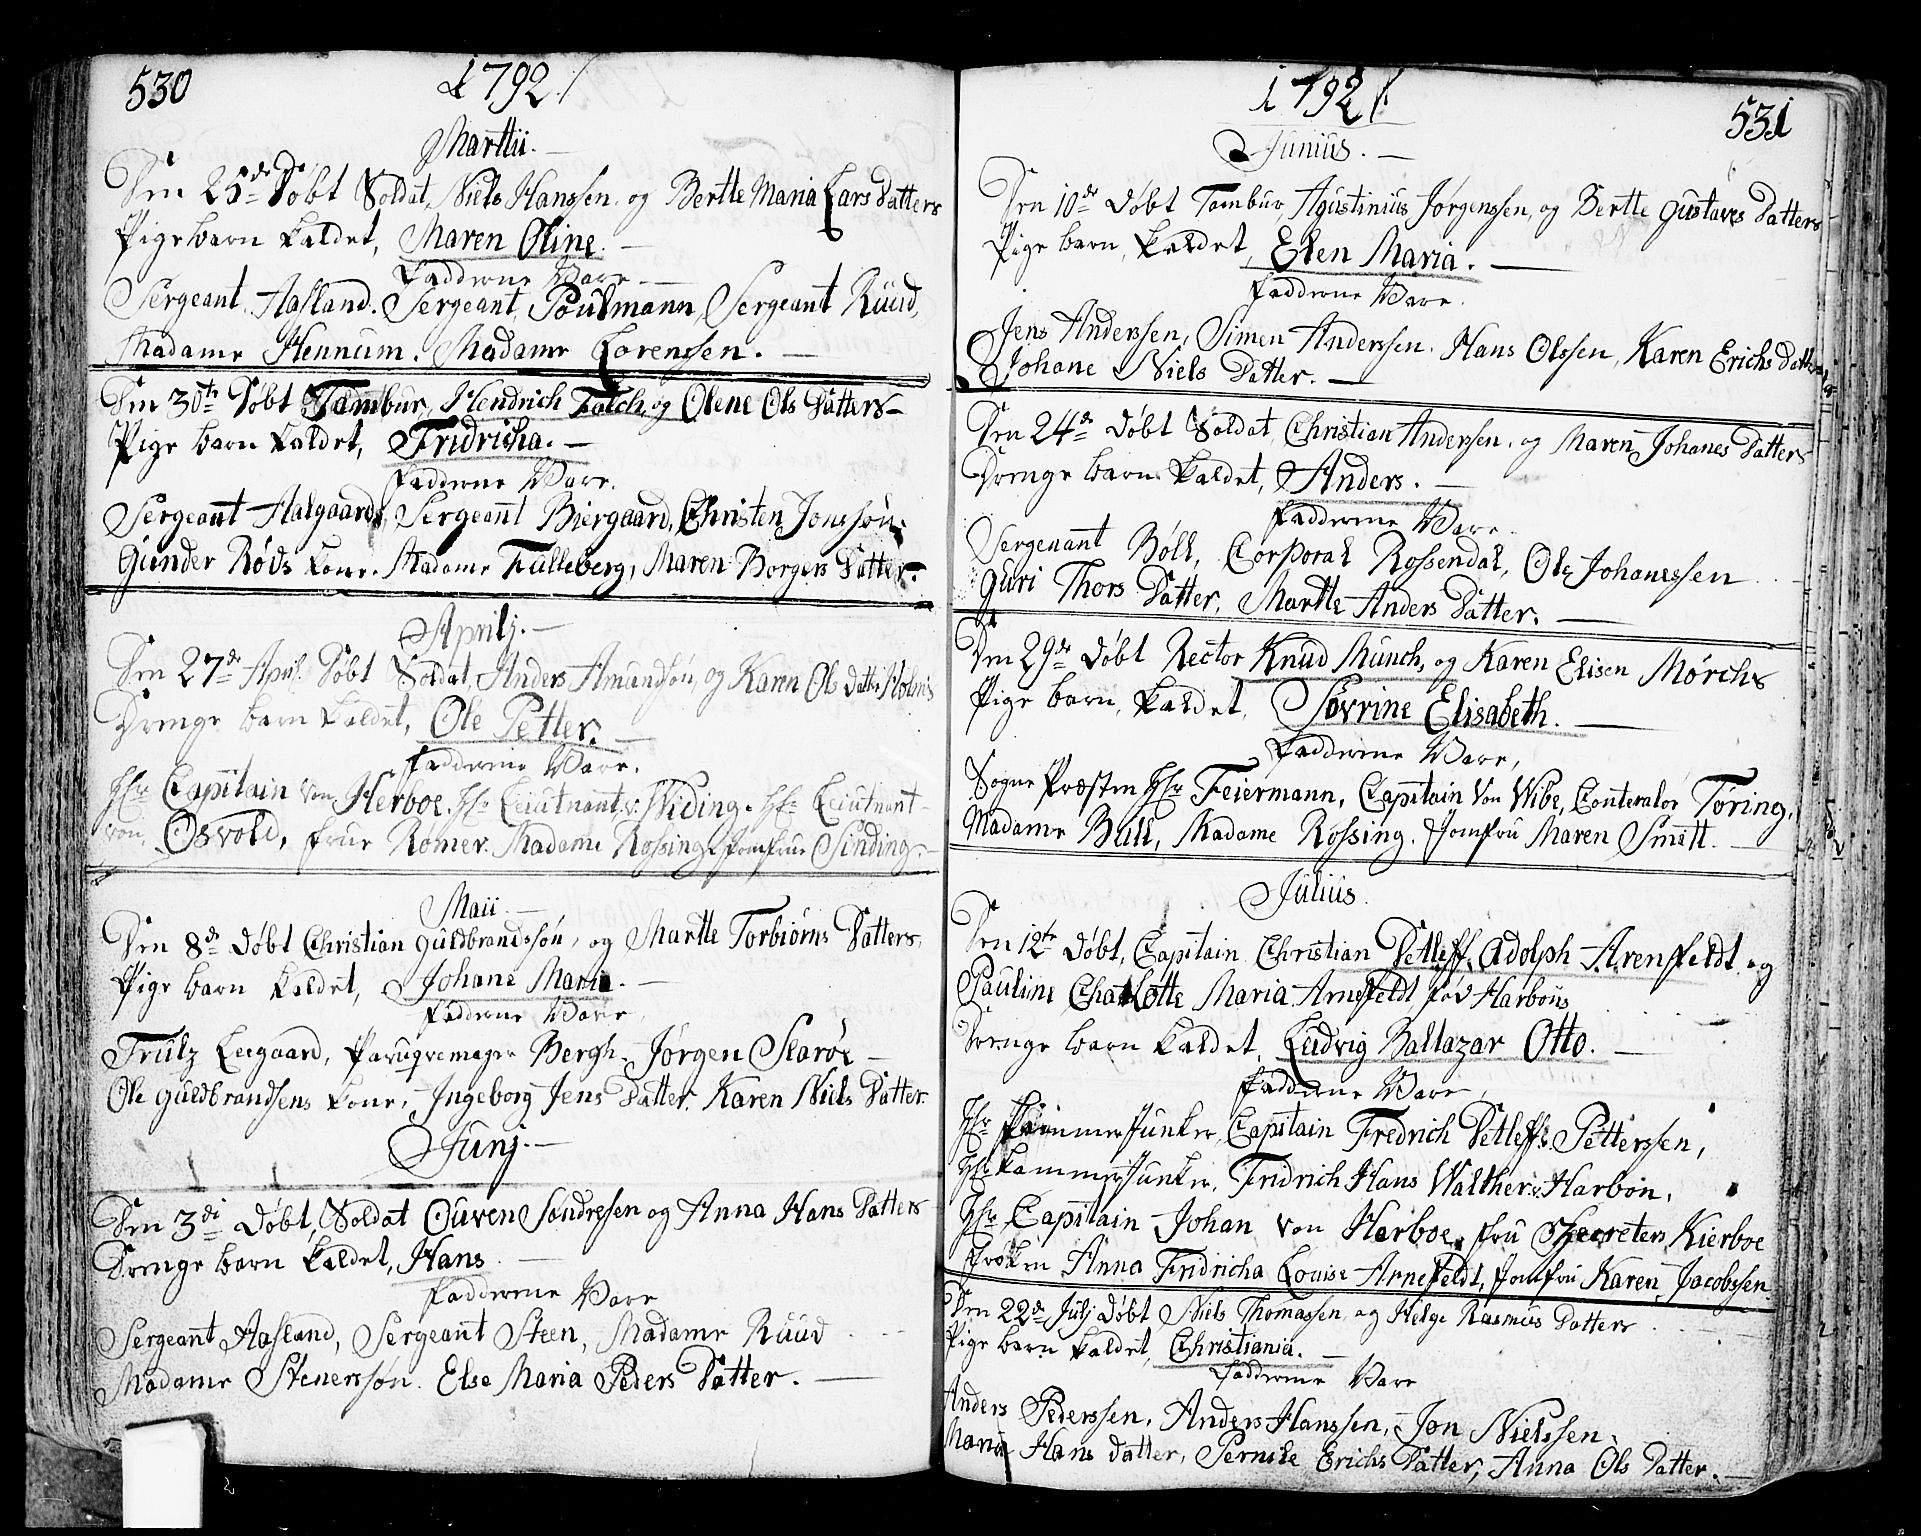 530
1792
Martii.
Den 25de Døbt Soldat, Niels Hanssen og Berthe Maria Lars Datters
Pige barn kaldet, Maren Oline.
Fadderne Vare
Sergeant Aasland. Sergeant, Poulmann, Sergeant Ruud,
Madame Hennum. Madame Lorenssen.
Den 30te Døbt Tambur, Hendrich Falch, og Olene Ols Datters
Pige barn kaldet, Fridricha.
Fadderne Vare.
Sergeant Aalgaard, Sergeant Biergaard, Christen Jonssøn.
Gunder Røds kone. Madame Fulleberg, Maren Borgers Datter.
Aprilj.
Den 27de April Døbt Soldat, Anders Amundsøn, og Karen Ols datter Holm's
Drenge barn kaldet, Ole Petter.
Fadderne Vare.
Hr Capitain von Herboe. Hr Leiutnant v. Widing. Hr Leiutnant
von Osvold, frue Rømer. Madame Rossing. Jomfrue Sinding.
Maii
Den 8de Døbt Christian Guldbrandssøn, og Marthe Torbiørns Datters,
Pige barn kaldet, Johane Maria.
Fadderne Vare
Trulz Leegaard, Paruqvemager Bergh. Jørgen Skarøe
Ole Guldbrandsens kone, Ingeborg Jens Datter. Karen Niels Datter.
Junj.
Den 3di Døbt, Soldat Ouven Søndresen og Anna Hans Datters
Drenge barn kaldet, Hans
Fadderne Vare
Sergeant Aasland, Sergeant Steen, Madame Ruud
Madame Stenerssøn. Else Maria Peders Datter.
1792
531
Junius.
Den 10de Døbt Tambur, Agustinius, Jørgenssen, og Berthe Gustaves Datters
Pige barn, kaldet, Elen Maria.
Fadderne Vare.
Jens Anderssen, Simen Anderssen. Hans Olssen, Karen Erichs Datter
Johane Niels Datter.
Den 24de Døbt Soldat, Christian Anderssen. og Maren Johanes Datters
Drenge barn kaldet, Anders.
Fadderne Vare.
Sergenant Bøll, Corporal Rossendal, Ole Johanessen
Guri Thors Datter, Marthe Anders Datter.
Den 29de Døbt Rector Knud Munch, og Karen Elisen Mørchs
Pige barn, kaldet, Sørrine Elisabeth.
Fadderne Vare,
Sogne Præsten Hr Feiermann, Capitain Von Wibe, Conterolør Tøring,
Madame Bull, Madame Rossing. Jomfru Maren Smitt.
Julius.
Den 12te Døbt, Capitain Christian Detleff Adolph Arenfeldt og
Pauline Charlotte Maria Arnefeldt fød Harbous
Drenge barn kaldet, Ludvig Baltazar Otto.
Fadderne Vare,
Hr Kammer Junker, Capitain Fredrich Detleffs Petterssen,
Hr kammer Junker, Fridrich Hans Walther v. Harbon,
Hr, Capitain Johan von Harboe, fru Kierboe
Frøken Anna Fridricha Louise Arnefeldt, Jomfru Karen, Jacobssen
Den 22de Julj Døbt Niels Thomassen, og Helge Rasmus Datters
Pige barn kaldet, Christiania.
Fadderne Vare
Anders Pederssen, Anders Hanssen, Jon Nielssen.
Maria Hans datter, Pernille Erichs Datter, Anna Ols Datter.